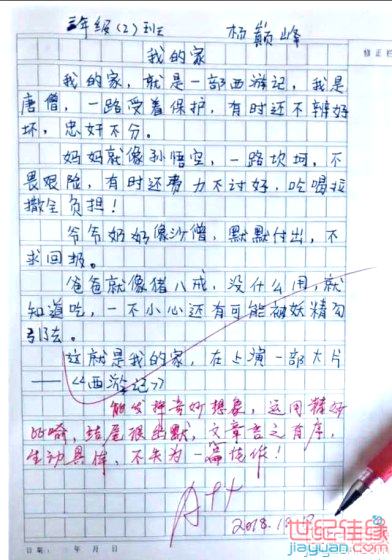 三年级(2)班 杨巅峰
修正栏
我的家
我的家，就是一部西游记，我是
唐僧，一路受着保护，有时还不辨好
坏，忠奸不分。
妈妈就像孙悟空，一路坎坷，不
畏艰险，有时还费力不讨好，吃喝拉
撒全负担！
爷爷奶奶像沙僧，默默付出，不
求回报。
爸爸就像猪八戒，没什么用，就
知道吃，一不小心还有可能被妖精勾
引去。
这就是我的家，在上演一部大片
——《西游记》
能发挥奇妙想象，运用精妙
比喻，结尾很幽默，文章言之有序，
生动具体，不失为一篇佳作！
A++
2018.
日期： 年 月 日
世纪佳缘
jiayuan.com